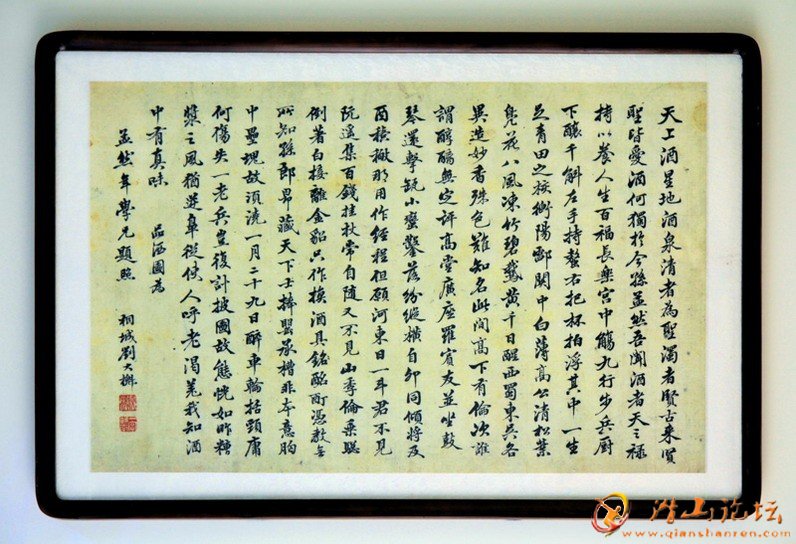 天上酒星地酒泉清者為聖濁者賢古來賢
聖皆愛酒何獨於今孫孟然吾聞酒者天之祿
持以養人生百福長樂宮中觴九行步兵厨
下釀千斛左手持螯右把杯拍浮其中一生
足青田之核衡陽酃關中白薄高公清松葉
兒花八風凍竹碧鵞黃千日醒西蜀東吳各
異造妙香殊色難知名此間高下有倫次誰
謂醇醨無定評高堂廣座羅賓友並坐鼓
琴還擊缶小蠻鑿落紛縱橫自卯同傾將及
酉糟檄那用作經程但願河東日一斗君不見
阮遥集百錢挂杖常自隨又不見山季倫棄驄
倒著白接離金貂只作換酒具銘酩酊憑教
所知孫郎昂藏天下士捧罌承槽非本意胸
中壘塊故須澆一月二十九日醉車輪括頸庸
何傷失一老兵豈復計披圖故態恍如昨糟
漿之風猶逆鼻從使人呼老渴羌我知酒
中有真味 品酒圖為
孟然年學兄題照 桐城劉大櫆
潜山论坛
www.qianshanren.com